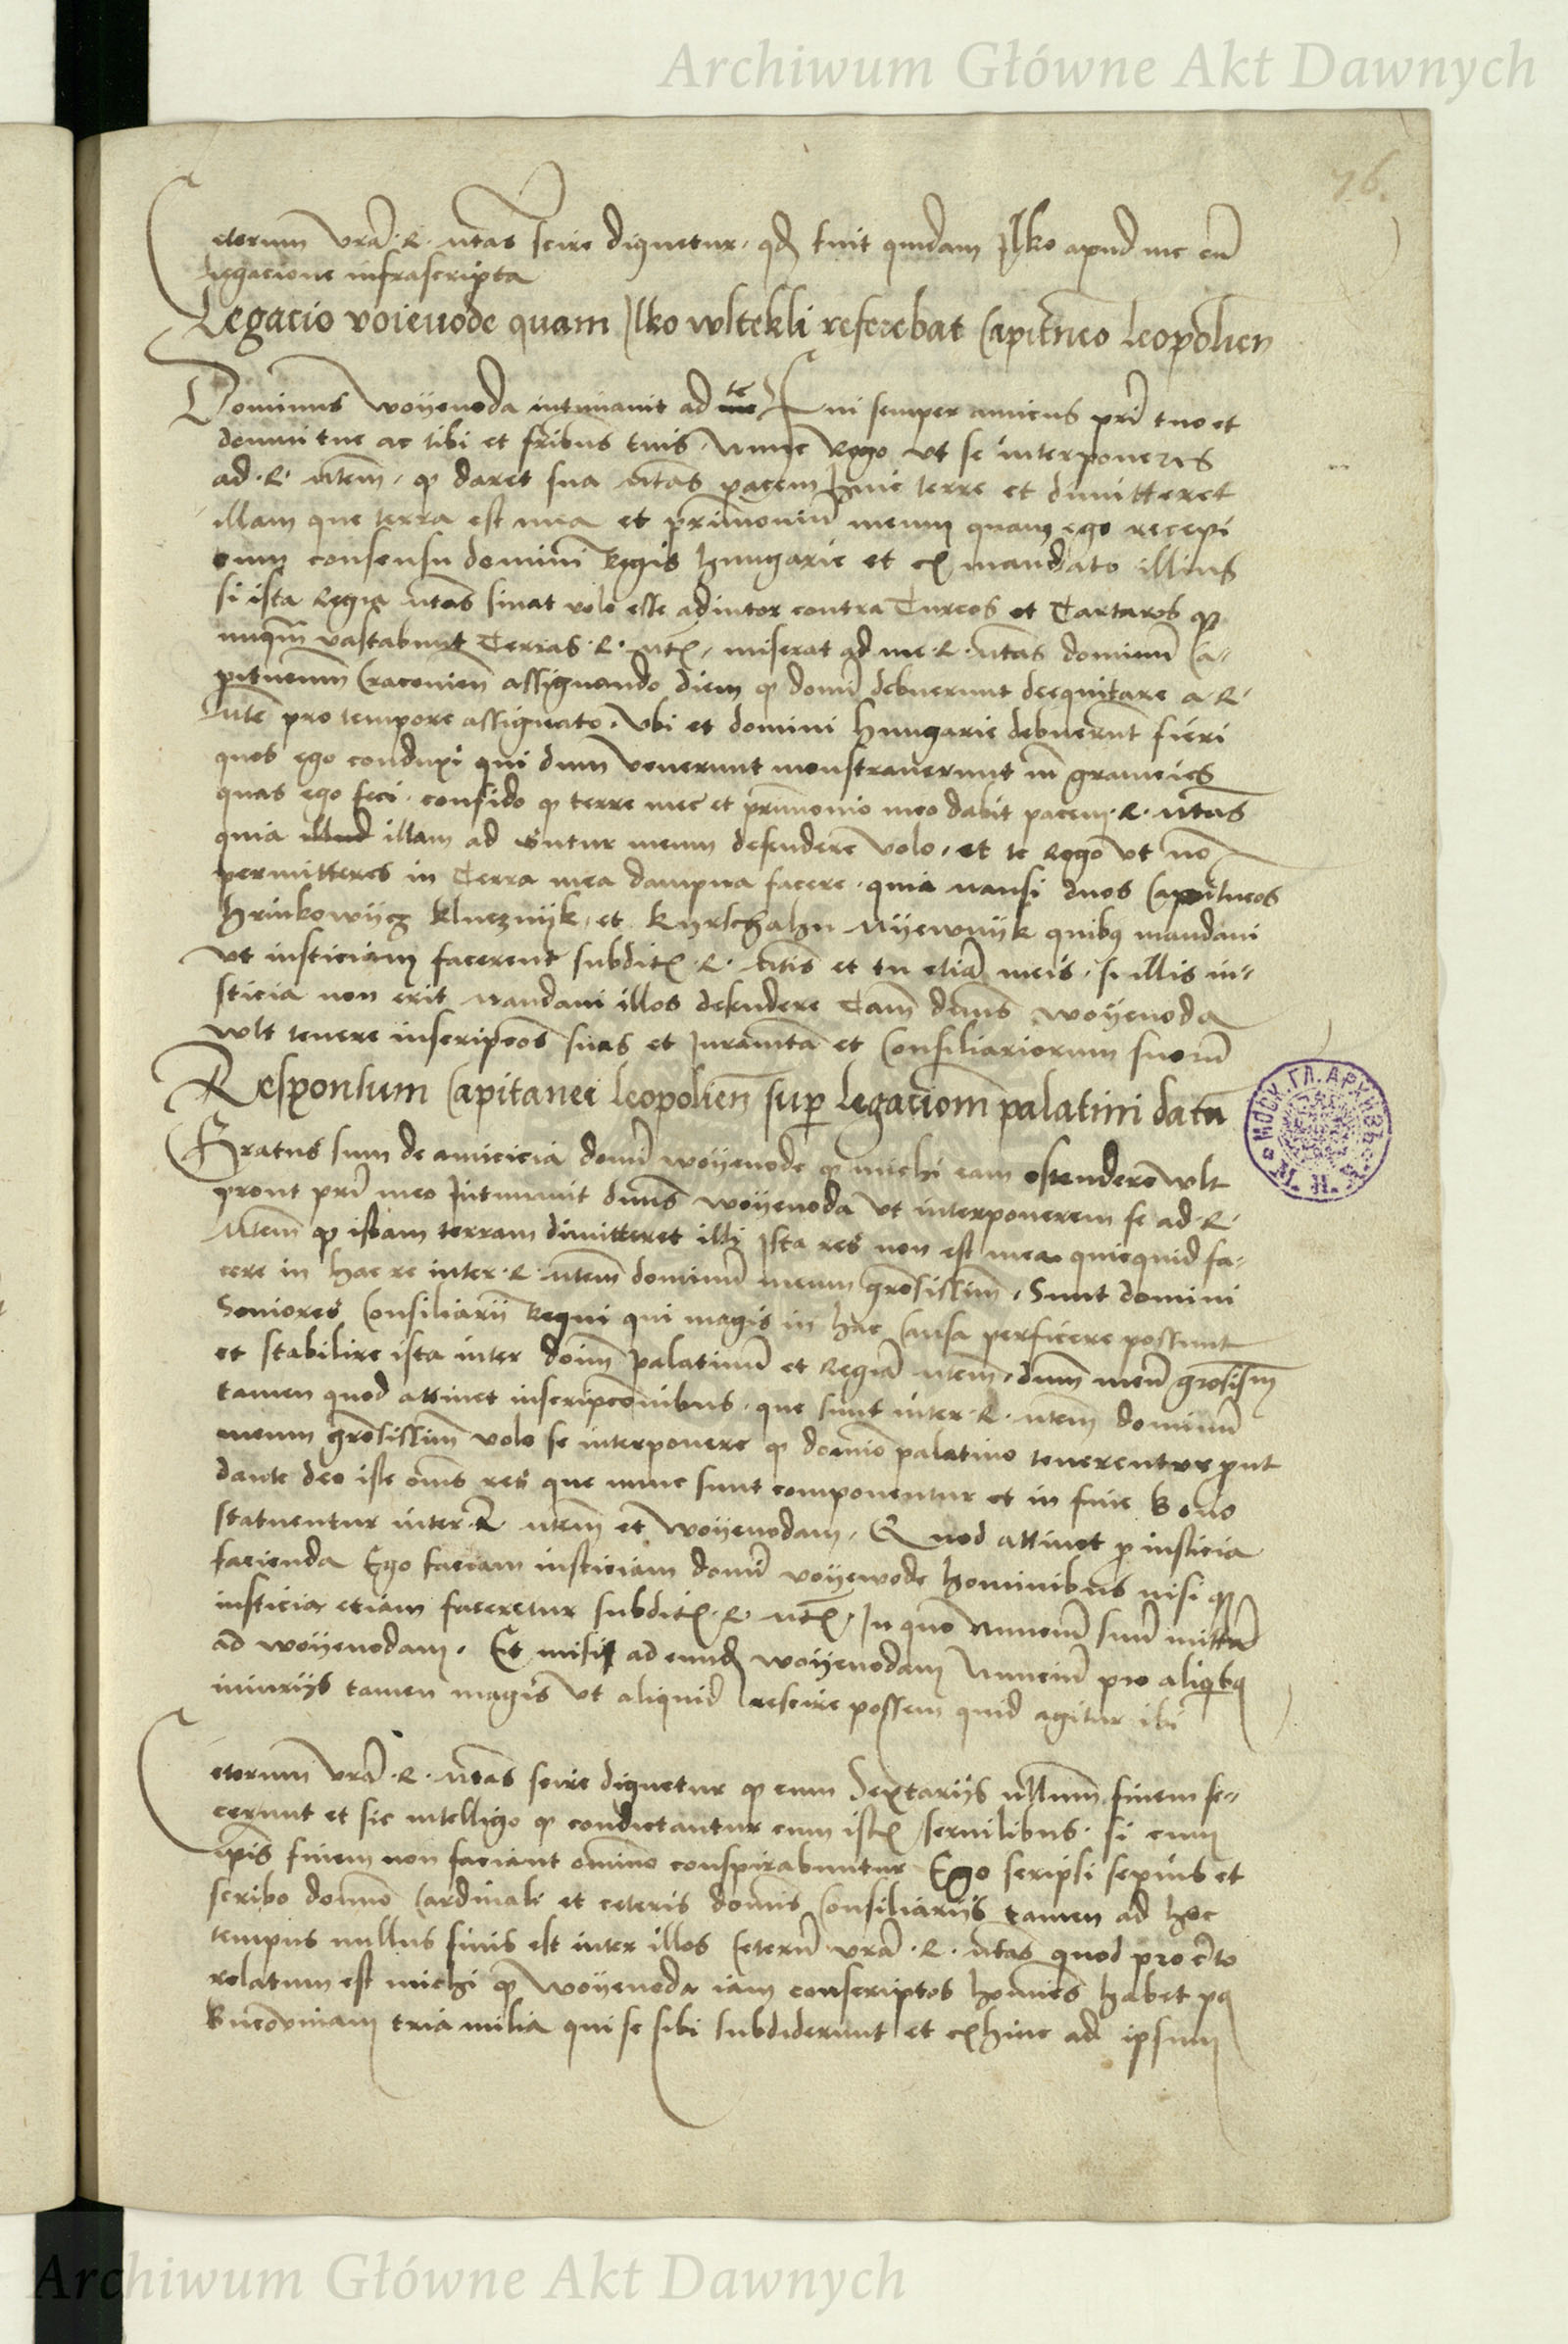 Archiwum Główne Akt Dawnych
76.
Ceterum vrã R. mtas scire dignetur, qd fuit quidam Jlko apud me cũ
legacione infrascripta
Legacio voievode quam Jlko wltekli referebat Capitneo leopolien
Dominus woyevoda intimavit ad me te Fui semper amicus pri tuo et
domui tue ac tibi et fribus tuis, nunc rogo vt se interponeres
ad R. mtem, qp daret sua mtas pacem huic terre et dimitteret
illam que terra est mea et primoniũ meum quam ego recepi
cum consensu domini Regis hungarie et ex mandato illius
si ista Regia mtas sinat volo esse adiutor contra Turcos et Tartaros qp
nuqm vastabunt Terras R. mtis, miserat ad me R. mtas dominũ Ca-
pitneum Cracovien assignando diem qp domi debuerunt deequitare a R.
mte pro tempore assignato, vbi et domini hungarie debuerunt fieri
quos ego conduxi qui dum venerunt monstraverunt m̃ graveies
quas ego feci, confido qp terre mee et primonio meo dabit pacem R. mtas
quia illud illam ad guttur meum defendere volo, et te rogo vt nõ
permitteres in Terra mea dampna facere, quia mansi duos Capitneos
hrinkowycz klucznyk, et
vt iusticiam facerent subditis R. mtis et tu etiã meis, si illis iu-
sticia non erit mandavi illos defendere Tam dnus woyevoda
wlt tenere inscripcoes suas et Juramta et Consiliariorum suorũ
Responsum Capitanei leopolien sup legaciom palatini data
Gratus sum de amicicia domi woyevode qp michi eam ostendere wlt
prout pri meo Jntimavit dnus woyevoda vt interponerem se ad R.
mtem qp istam terram dimitteret illi Jsta res non est mea quicquid fa-
cere in hac re inter R. mtem dominũ meum grosissim, Sunt domini
Seniores Consiliarii Regni qui magis in hac causa perficere possunt
et stabilire ista inter doim palatinũ et Regiã mtem, dnum meũ grosism
tamen quod attinet inscripconibus, que sunt inter R. mtem dominũ
meum grosissim volo se interponere qp domio palatino tenerentur put
dante deo iste oms res que nunc sunt componentur et in fine bono
statuentur inter R. mtem et woyevodam, Quod attinet p iusticia
facienda Ego faciam iusticiam domi voyewode hominibus nisi qp
iusticia etiam faceretur subditis R. mtis, Jn quo nunciũ suũ mittã
ad woyevodam, Et misi ad eundem woyevodam Nunciũ pro aliqbq
iniuriis tamen magis vt aliquid rescire possem quid agitur ibi
Ceterum vrã R. mtas scire dignetur qp cum Sextariis nullum finem fe-
cerunt et sic intelligo qp condictantur cum istis servilibus, si cum
ipis finem non faciant omino conspirabuntur Ego scripsi sepius et
scribo domno Cardinali et ceteris domis Consiliariis tamen ad hoc
tempus nullus finis est inter illos Ceterũ vrã R. mtas quod pro certo
relatum est michi qp woyevoda iam conscriptos homies habet pq
Bucovinam tria milia qui se sibi subdiderunt et exhinc ad ipsum
МОСК. ГЛ. АРХИВЪ
Archiwum Główne Akt Dawnych